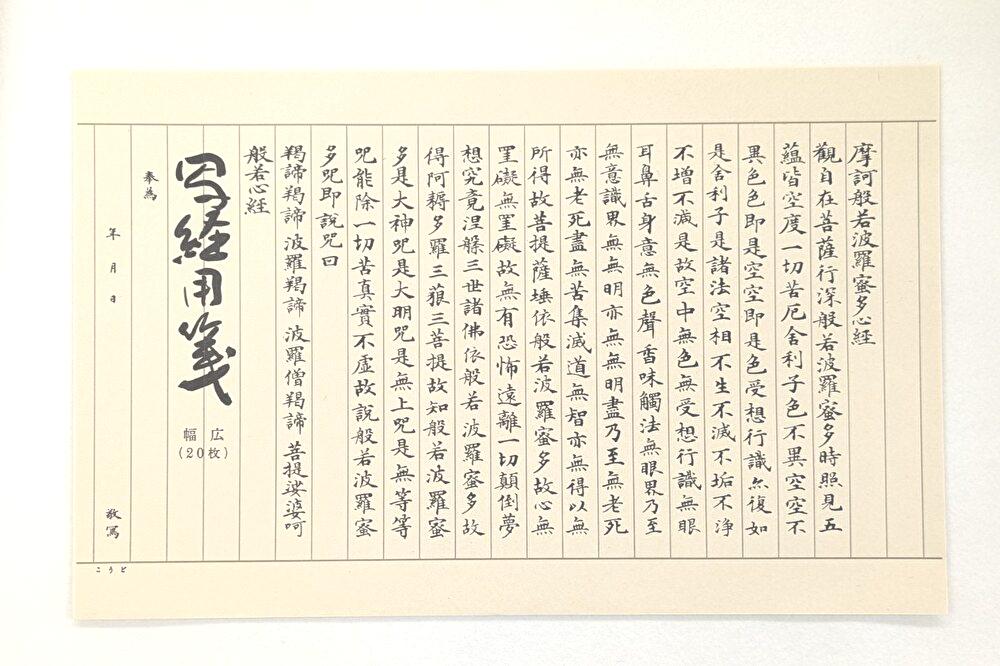 摩訶般若波羅蜜多心経
觀自在菩薩行深般若波羅蜜多時照見五
蘊皆空度一切苦厄舍利子色不異空空不
異色色即是空空即是色受想行識亦復如
是舍利子是諸法空相不生不滅不垢不浄
不增不減是故空中無色無受想行識無眼
耳鼻舌身意無色聲香味觸法無眼界乃至
無意識界無無明亦無無明盡乃至無老死
亦無老死盡無苦集滅道無智亦無得以無
所得故菩提薩埵依般若波羅蜜多故心無
罣礙無罣礙故無有恐怖遠離一切顛倒夢
想究竟涅槃三世諸佛依般若波羅蜜多故
得阿耨多羅三藐三菩提故知般若波羅蜜
多是大神咒是大明咒是無上咒是無等等
咒能除一切苦真實不虛故說般若波羅蜜
多咒即說咒曰
羯諦羯諦 波羅羯諦 波羅僧羯諦 菩提娑婆呵
般若心経
写経用箋
広幅
(20枚)
奉為
年 月 日
敬寫
こうど